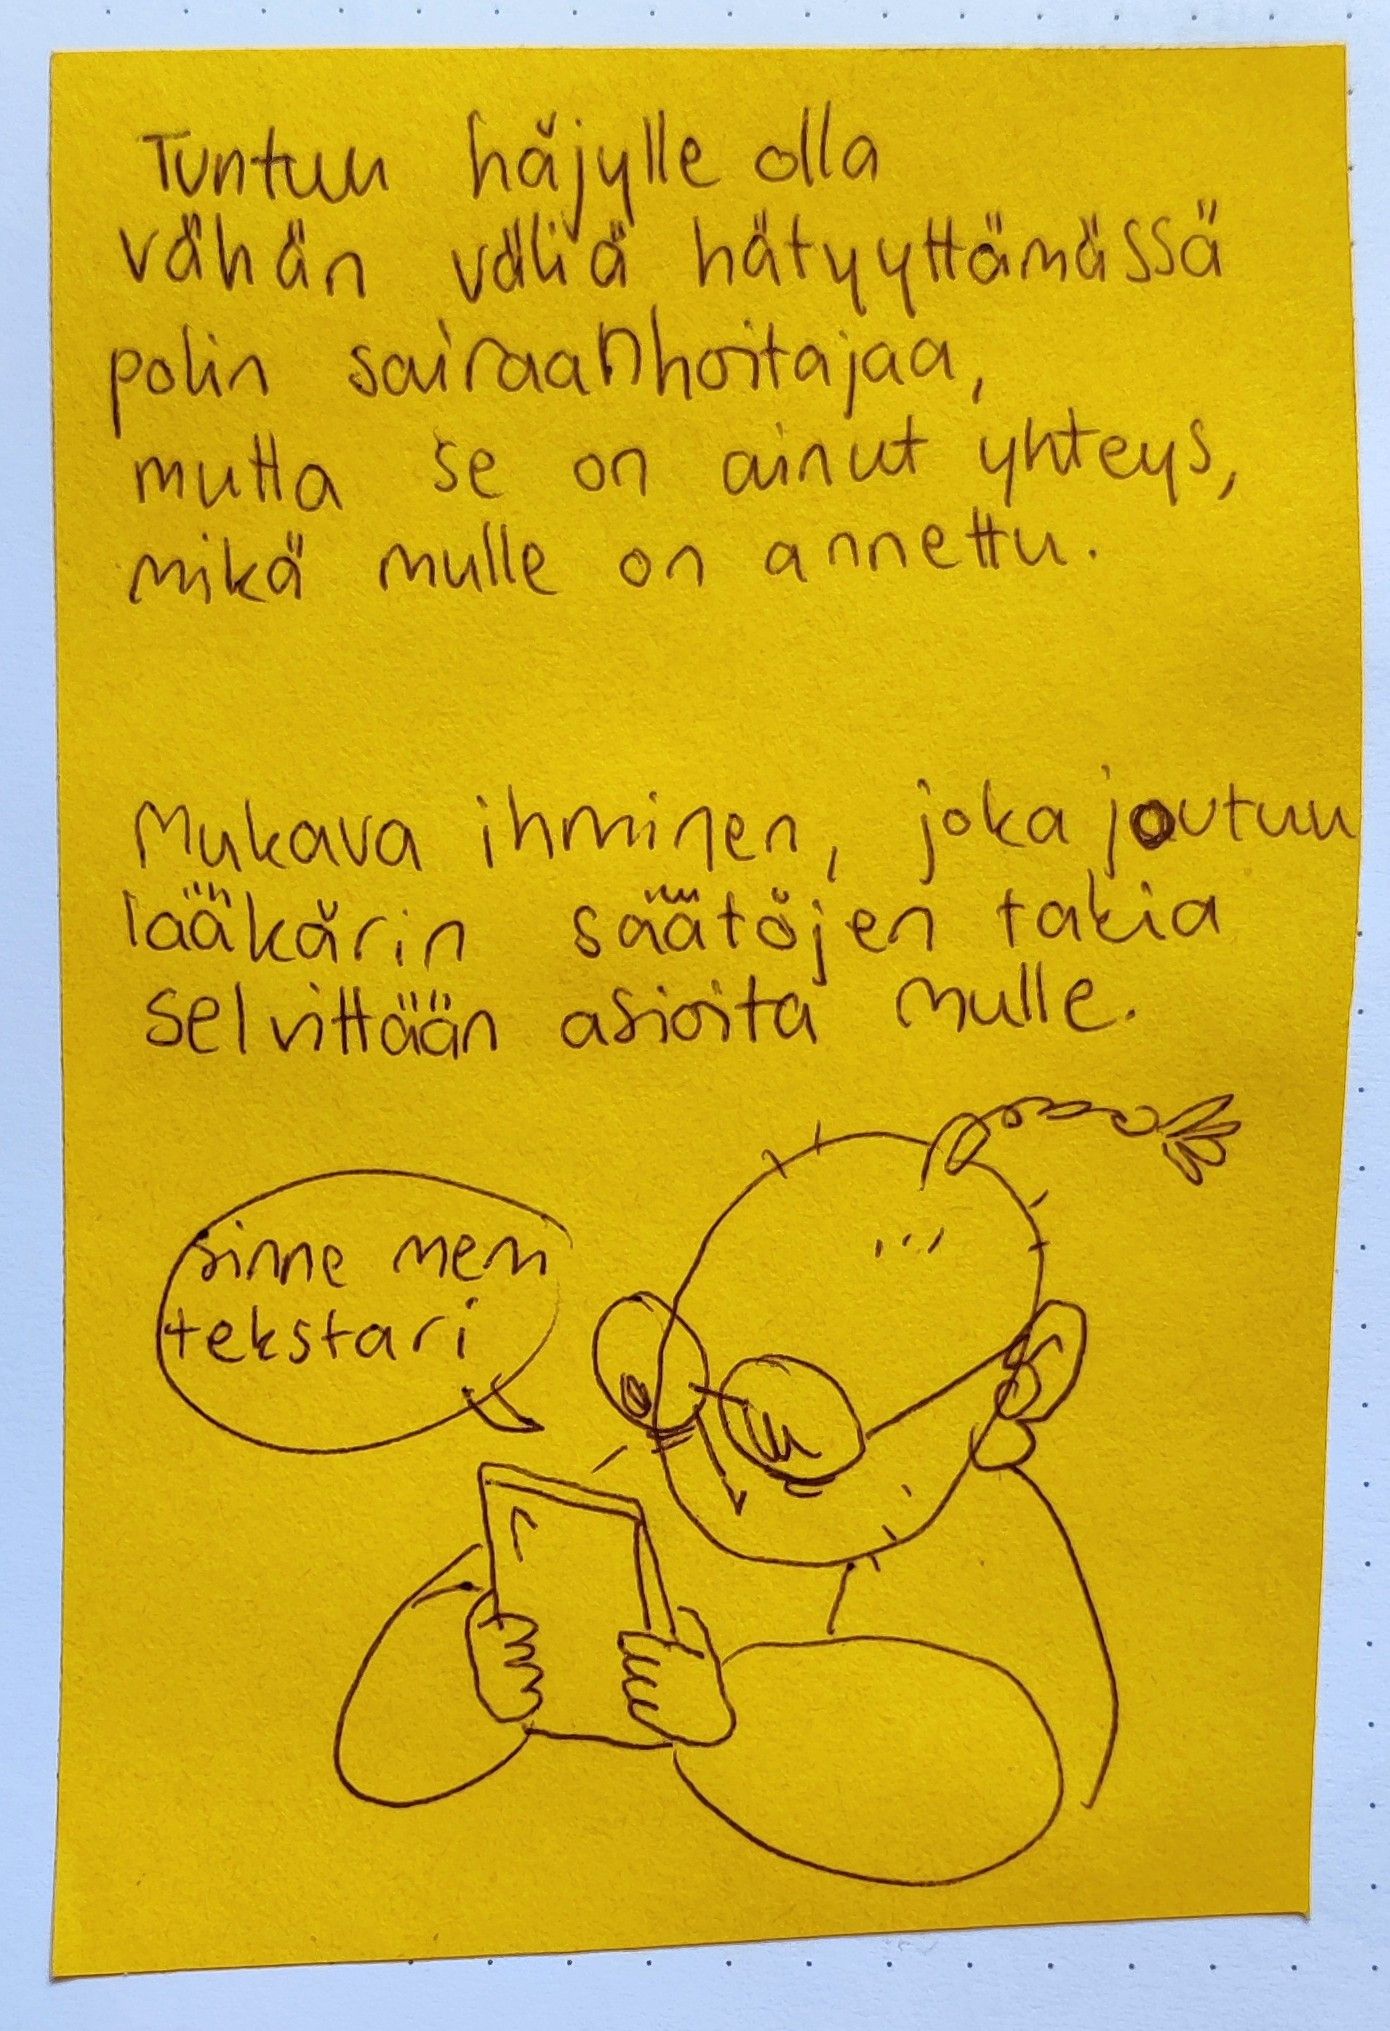 Tuntuu häjylle olla
vähän väliä hätyyttämässä
polin sairaanhoitajaa,
mutta se on ainut yhteys,
mikä mulle on annettu.
Mukava ihminen, joka joutuu
lääkärin säätöjen takia
selvittään asioita mulle.
sinne meni
tekstari